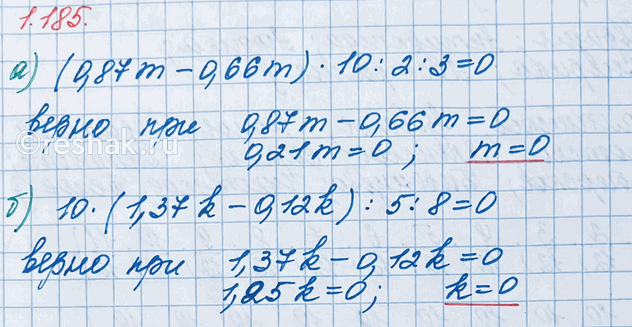 1.185.
а) (0,87m − 0,66m) · 10 : 2 : 3 = 0
верно при 0,87m − 0,66m = 0
©reshak.ru
0,21m = 0 ; m = 0
б) 10 · (1,37k − 0,12k) : 5 : 8 = 0
верно при 1,37k − 0,12k = 0
1,25k = 0 ; k = 0